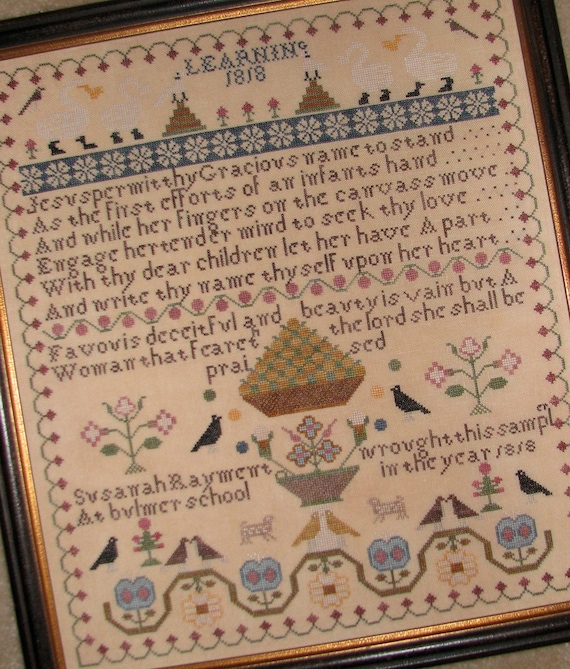 LEARNING
1818
Jesus permit thy Gracious name to stand
As the First efforts of an infants hand
And while her Fingers on the canvass move
Engage her tender mind to seek thy love
With thy dear children let her have A part
And write thy name thyself vpon her heart
Favour is deceitFvl and beavty is vain bvt A
Woman that Feareth the lord she shall be
praised
Svsanah Rayment wrovght this sampl
At bvlmer school in the year 1818